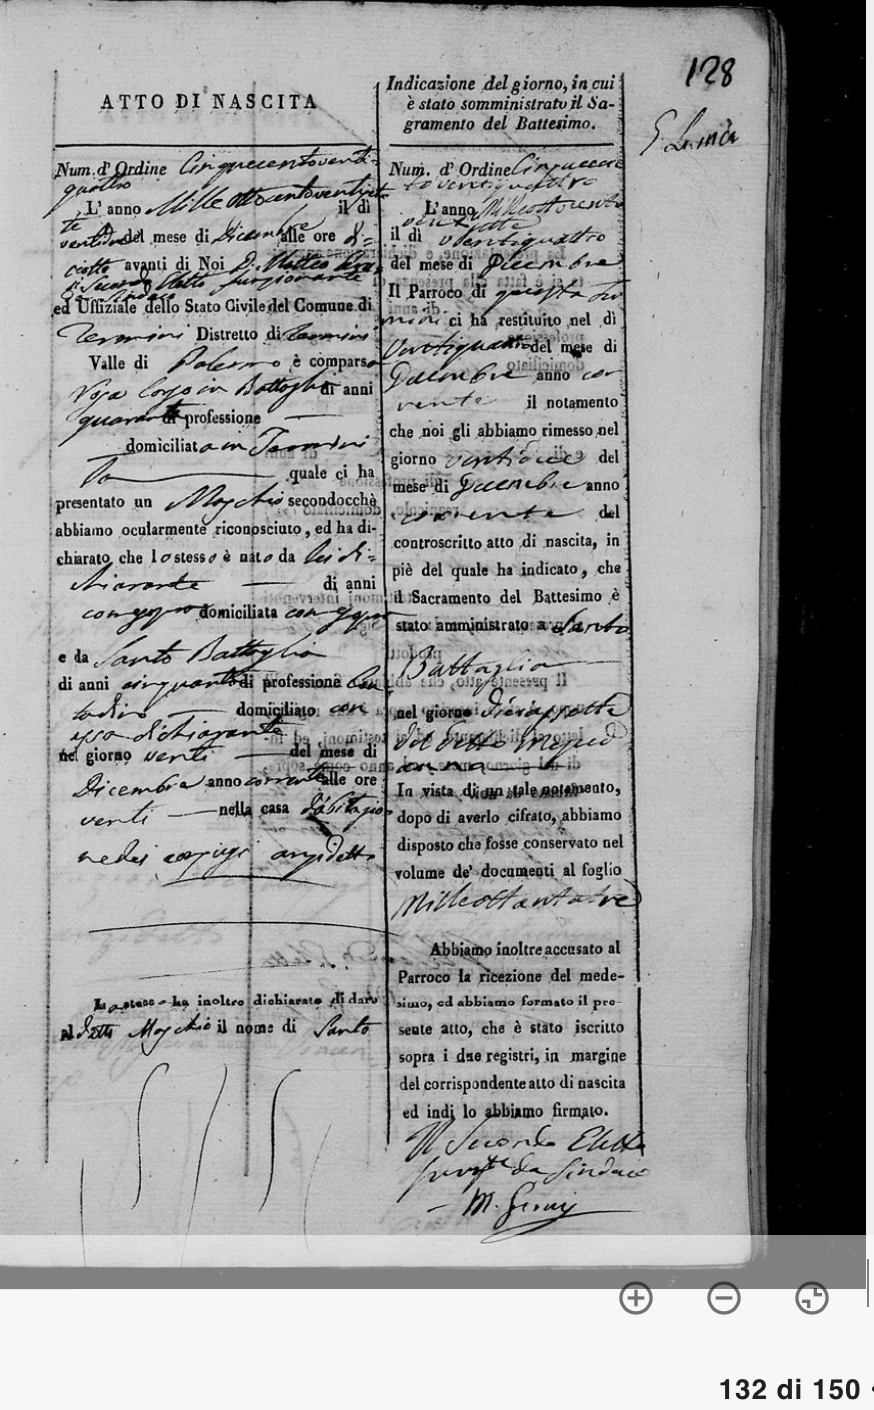 128
ATTO DI NASCITA
Num. d' Ordine Cinquecentoventi=
quattro
L' anno Mille ottocentoventi
il dì
del mese di Dicembre alle ore di=
ciotto avanti di Noi D. Matteo
Secondo Eletto funzionante
da Sindaco
ed Uffiziale dello Stato Civile del Comune di
Termini Distretto di Termini
Valle di Palermo è comparsa
in Battaglia di anni
quaranta di professione —
domiciliata in Termini
la quale ci ha
presentato un Maschio secondocchè
abbiamo ocularmente riconosciuto, ed ha di-
chiarato che lo stesso è nato da lei di=
chiarante — di anni
come sopra domiciliata come sopra
e da Santo Battaglia
di anni cinquanta di professione Con
tadino — domiciliato con
essa dichiarante
nel giorno venti — del mese di
Dicembre anno corrente alle ore
venti — nella casa d'abitazio
ne dei coniugi anzidetti
Lo stesso ha inoltre dichiarato di dare
al detto Maschio il nome di Santo
Indicazione del giorno, in cui
è stato somministrato il Sa-
gramento del Battesimo.
Num. d' Ordine Cinquecen
toventiquattro
L' anno Mille ottocento
ventisette
il dì ventiquattro
del mese di Dicembre
Il Parroco di questa Ter
mini ci ha restituito nel dì
Ventiquattro del mese di
Dicembre anno cor
rente il notamento
che noi gli abbiamo rimesso nel
giorno del
mese di Dicembre anno
corrente del
controscritto atto di nascita, in
piè del quale ha indicato, che
il Sacramento del Battesimo è
stato amministrato a Santo
Battaglia —
nel giorno
del detto mese ed
anno
In vista di un tale notamento,
dopo di averlo cifrato, abbiamo
disposto che fosse conservato nel
volume de' documenti al foglio
Milleottantatre
Abbiamo inoltre accusato al
Parroco la ricezione del mede-
simo, ed abbiamo formato il pre-
sente atto, che è stato iscritto
sopra i due registri, in margine
del corrispondente atto di nascita
ed indi lo abbiamo firmato.
Il Secondo Eletto
da Sindaco
132 di 150